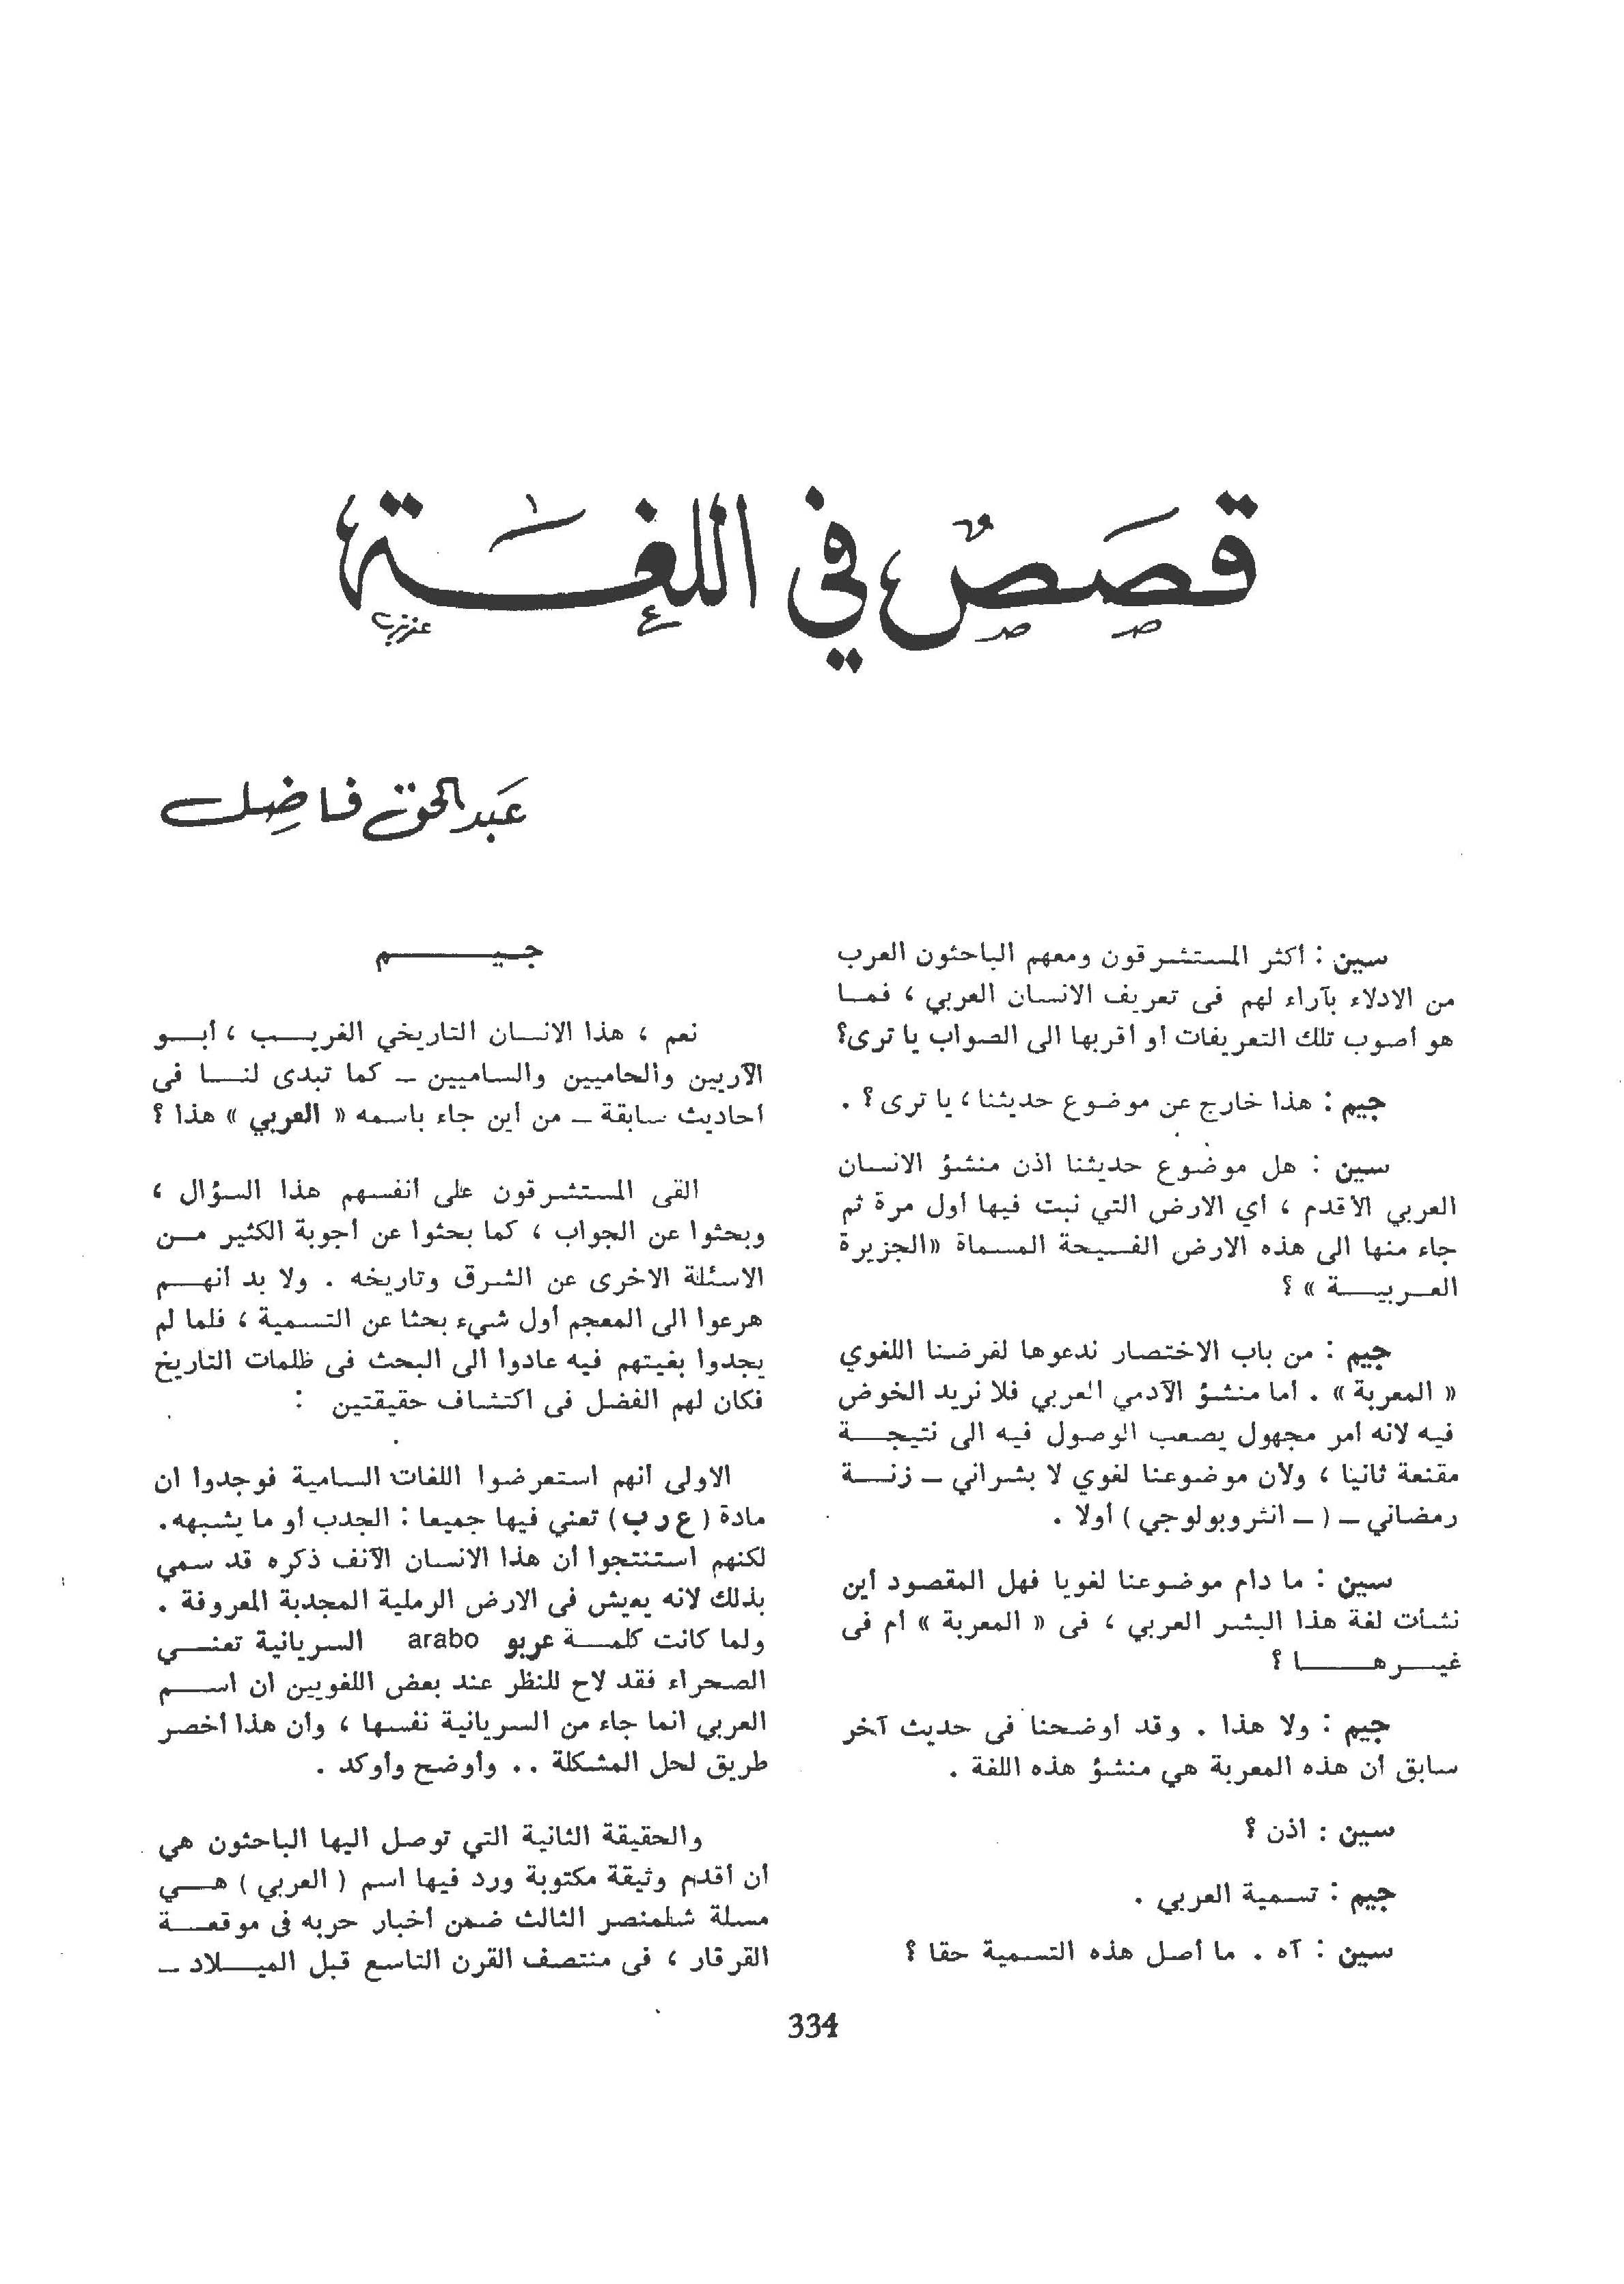 قصص في اللغة
عبد الحق فاضل
سين : أكثر المستشرقون ومعهم الباحثون العرب
من الادلاء بآراء لهم فى تعريف الانسان العربي ، فمـا
هو أصوب تلك التعريفات أو اقربها الى الصواب يا ترى؟
جيم : هذا خارج عن موضوع حديثنا ، يا ترى ؟ .
سين : هل موضوع حديثنا اذن منشؤ الانسان
العربي الأقدم ، أي الارض التي نبت فيها أول مرة ثم
جاء منها الى هذه الارض الفسيحة المسماة «الجزيرة
العـربيـــة » ؟
جيم : من باب الاختصار ندعوها لغرضنا اللغوي
« المعربة » . أما منشؤ الآدمي العربي فلا نريد الخوض
فيه لانه أمر مجهول يصعب الوصول فيه الى نتيجـــة
مقنعة ثانيا ، ولأن موضوعنا لغوي لا بشراني ــ زنـــة
رمضاني ــ ( ــ انثروبولوجي ) أولا .
سين : ما دام موضوعنا لغويا فهل المقصود أين
نشأت لغة هذا البشر العربي ، فى « المعربة » أم فى
غيـــرهـــــا ؟
جيم : ولا هذا . وقد أوضحنا فى حديث آخر
سابق أن هذه المعربة هي منشؤ هذه اللغة .
سين : اذن ؟
جيم : تسمية العربي .
سين : آه . ما أصل هذه التسمية حقا ؟
جـــيـــــم
نعم ، هذا الانسان التاريخي الغريـــب ، أبـــو
الآريين والحاميين والساميين ــ كما تبدى لنـــا فى
أحاديث سابقة ــ من أين جاء باسمه « العربي » هذا ؟
القى المستشرقون على أنفسهم هذا السؤال ،
وبحثوا عن الجواب ، كما بحثوا عن أجوبة الكثير مـن
الاسئلة الاخرى عن الشرق وتاريخه . ولا بد أنهـــم
هرعوا الى المعجم أول شيء بحثا عن التسمية ، فلما لم
يجدوا بغيتهم فيه عادوا الى البحث فى ظلمات التاريخ
فكان لهم الفضل فى اكتشاف حقيقتين :
الاولى أنهم استعرضوا اللغات السامية فوجدوا ان
مادة ( ع ر ب ) تعني فيها جميعا : الجدب أو ما يشبهه.
لكنهم استنتجوا أن هذا الانسان الآنف ذكره قد سمي
بذلك لانه يعيش فى الارض الرملية المجدبة المعروفة .
ولما كانت كلمـــة عربو arabo السريانية تعنـــي
الصحراء فقد لاح للنظر عند بعض اللغويين ان اســـم
العربي انما جاء من السريانية نفسها ، وأن هذا أخصر
طريق لحل المشكلة .. وأوضح وأوكد .
والحقيقة الثانية التي توصل اليها الباحثون هي
أن أقدم وثيقة مكتوبة ورد فيها اسم ( العربي ) هـــي
مسلة شلمنصر الثالث ضمن أخبار حربه فى موقعـــة
القرقار ، فى منتصف القرن التاسع قبل الميـــلاد ــ
334